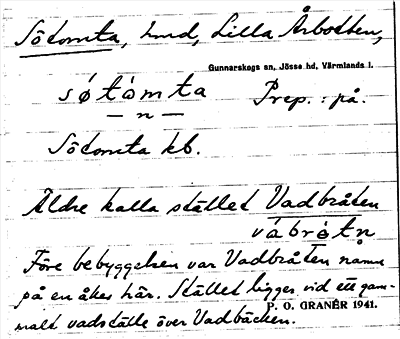 Sötomta, lmd, Lilla Årbotten,
Gunnarskogs sn, Jösse hd, Värmlands l.
søtòmta Prep.: på.
— n —
Sötomta kb.
Äldre kalla stället Vadbråten
vábrøtn
Före bebyggelsen var Vadbråten namn
på en åker här. Stället ligger vid ett gam-
malt vadställe över Vadbäcken.
P. O. GRANÉR 1941.